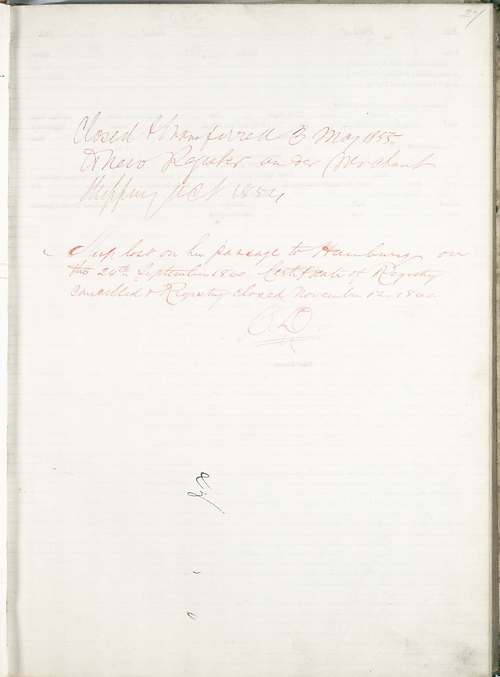 27
Closed & transferred 3 May 1855
to New Register under Merchant
Shipping Act 1854
Ship lost on her passage to Hamburg on
the 24th September 1860 Certificate of Registry
cancelled & Registry closed November 12 1860